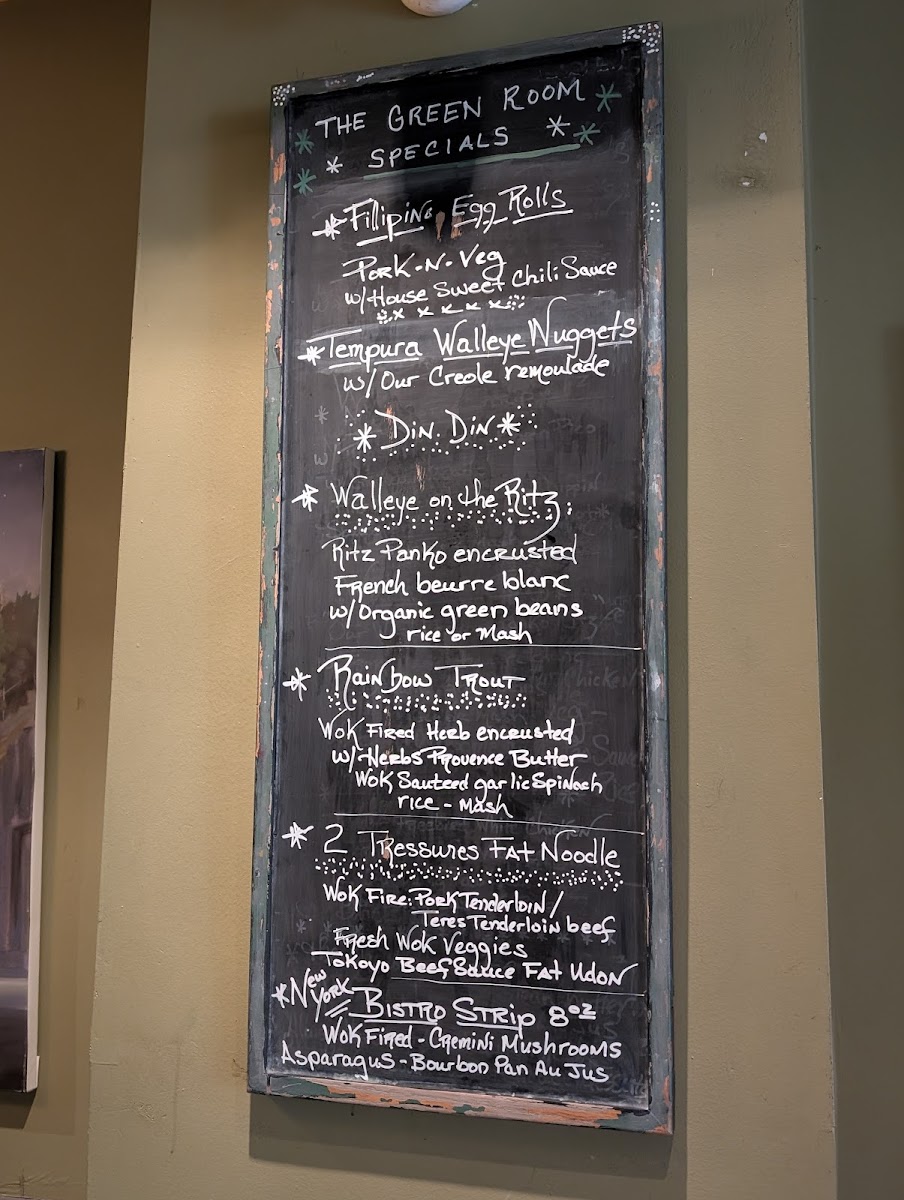 THE GREEN ROOM
SPECIALS
Fillipino Egg Rolls
Pork-N-Veg
w/House Sweet Chili Sauce
Tempura Walleye Nuggets
w/ Our Creole remoulade
Din Din
Walleye on the Ritz
Ritz Panko encrusted
French beurre blanc
w/Organic green beans
rice or Mash
Rainbow Trout
Wok Fired Herb encrusted
w/ Herbs Provence Butter
Wok Sauteed garlic Spinach
rice - Mash
2 Tressures Fat Noodle
Wok Fire: Pork Tenderloin/
Teres Tenderloin beef
Fresh Wok Veggies
Tokoyo Beef Sauce Fat Udon
New York Bistro Strip 8oz
Wok Fired - Cremini Mushrooms
Asparagus - Bourbon Pan Au Jus